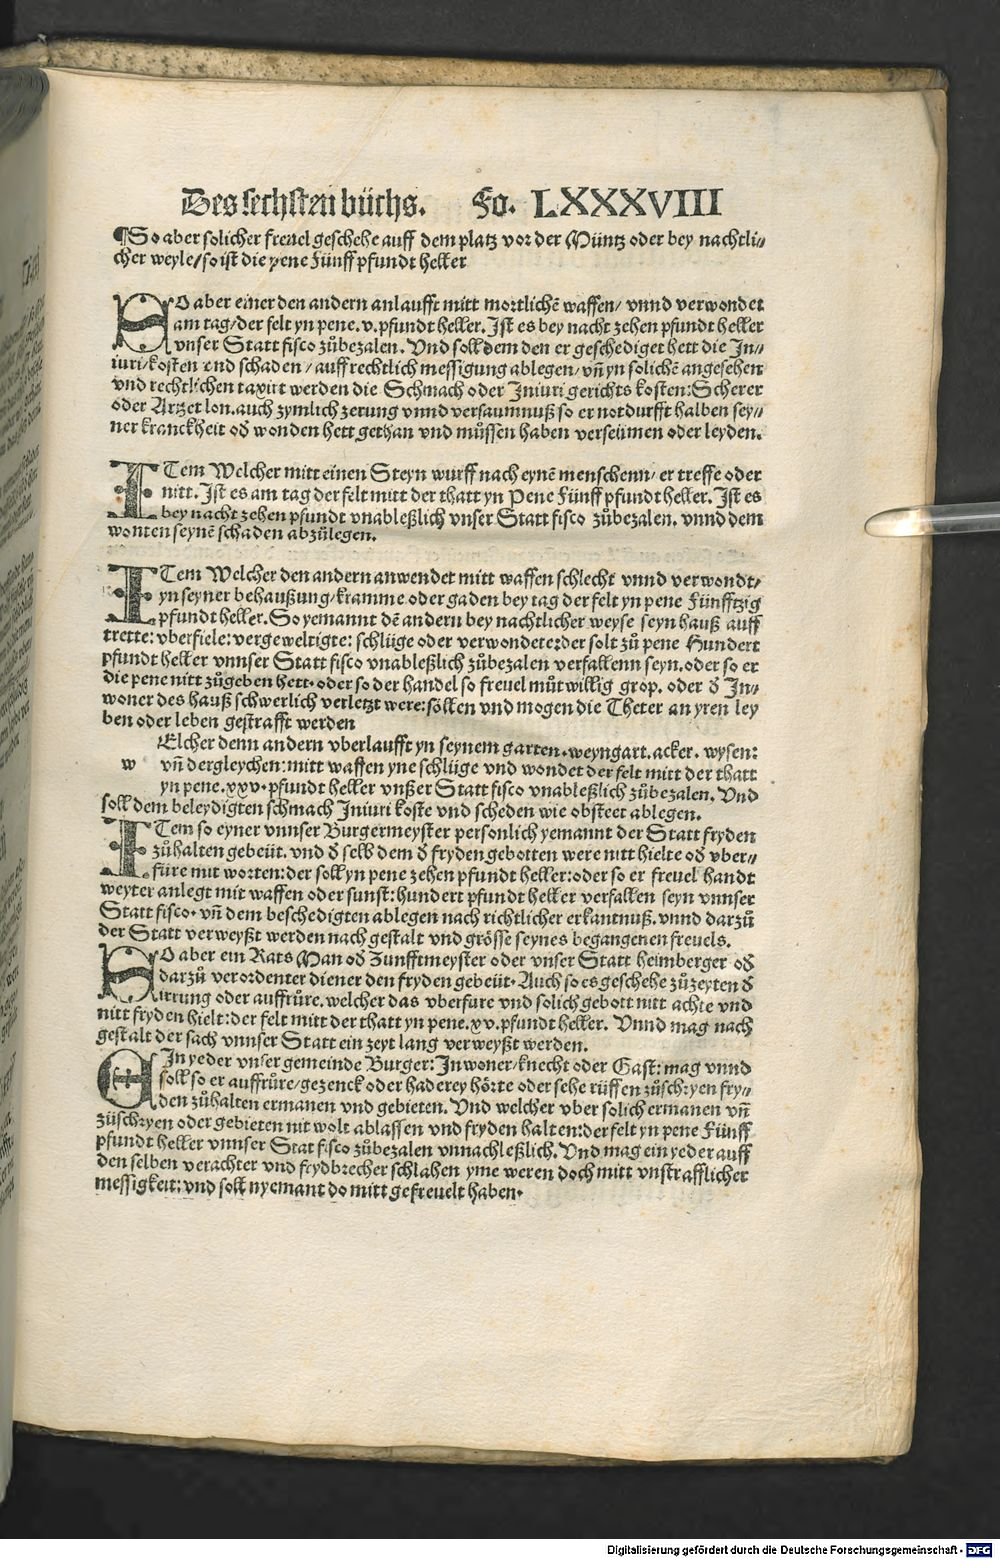 Des sechsten büchs. Fo. LXXXVIII
¶So aber solicher freuel geschehe auff dem platz vor der Müntz oder bey nachtli⸗
cher weyle/so ist die pene Fünff pfundt heller
SO aber einer den andern anlaufft mitt mortlichē waffen/ vnnd verwondet
am tag/der felt yn pene.v.pfundt heller. Ist es bey nacht zehen pfundt heller
vnser Statt fisco zůbezalen. Vnd soll dem den er geschediget hett die In⸗
iuri/kosten vnd schaden/ auff rechtlich messigung ablegen/ vñ yn solichē angesehen
vnd rechtlichen taxirt werden die Schmach oder Iniuri gerichts kosten:Scherer
oder Artzet lon.auch zymlich zerung vnnd versaumnuß so er notdurfft halben sey⸗
ner kranckheit od wonden hett gethan vnd můssen haben verseümen oder leyden.
ITem Welcher mitt einen Steyn wurff nach eynē menschenn/ er treffe oder
nitt. Ist es am tag der felt mitt der thatt yn Pene Fünff pfundt heller. Ist es
bey nacht zehen pfundt vnableßlich vnser Statt fisco zůbezalen. vnnd dem
wonten seynē schaden abzůlegen.
ITem Welcher den andern anwendet mitt waffen schlecht vnnd verwondt/
yn seyner behaußung/kramme oder gaden bey tag der felt yn pene Fünfftzig
pfundt heller. So yemannt dē andern bey nachtlicher weyse seyn hauß auff
trette: vberfiele: vergeweltigte: schlüge oder verwondete:der solt zů pene Hundert
pfundt heller vnnser Statt fisco vnableßlich zůbezalen verfallenn seyn.oder so er
die pene nitt zůgeben hett.oder so der handel so freuel můtwillig grop. oder d In⸗
woner des hauß schwerlich verletzt were:söllen vnd mogen die Theter an yren ley
ben oder leben gestrafft werden
wElcher denn andern vberlaufft yn seynem garten.weyngart.acker. wysen:
vñ dergleychen:mitt waffen yne schlüge vnd wondet der felt mitt der thatt
yn pene.xxv.pfundt heller vnßer Statt fisco vnableßlich zůbezalen. Vnd
soll dem beleydigten schmach Iniuri koste vnd scheden wie obsteet ablegen.
ITem so eyner vnnser Burgermeyster personlich yemannt der Statt fryden
zůhalten gebeüt. vnd d selb dem d fryden gebotten were nitt hielte od vber⸗
füre mit worten:der soll yn pene zehen pfundt heller:oder so er freuel handt
weyter anlegt mit waffen oder sunst:hundert pfundt heller verfallen seyn vnnser
Statt fisco. vñ dem beschedigten ablegen nach richtlicher erkantnuß.vnnd darzů
der Statt verweyßt werden nach gestalt vnd grösse seynes begangenen freuels.
SO aber ein Rats Man od Zunfftmeyster oder vnser Statt heimberger od
darzů verordenter diener den fryden gebeüt. Auch so es geschehe zůzeyten d
irrung oder auffrůre.welcher das vberfure vnd solich gebott nitt achte vnd
nitt fryden hielt:der felt mitt der thatt yn pene.xv.pfundt heller. Vnnd mag nach
gestalt der sach vnnser Statt ein zeyt lang verweyßt werden.
EIn yeder vnser gemeinde Burger: Inwoner/knecht oder Gast: mag vnnd
soll so er auffrůre/gezenck oder haderey hörte oder sehe rüffen zůschryen fry⸗
den zůhalten ermanen vnd gebieten. Vnd welcher vber solich ermanen vñ
zůschryen oder gebieten nit wolt ablassen vnd fryden halten:der felt yn pene Fünff
pfundt heller vnnser Stat fisco zůbezalen vnnachleßlich. Vnd mag ein yeder auff
den selben verachter vnd frydbrecher schlahen yme weren doch mitt vnstrafflicher
messigkeit: vnd soll nyemant do mitt gefreuelt haben.
Digitalisierung gefördert durch die Deutsche Forschungsgemeinschaft - DFG